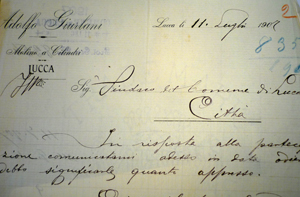 Adolfo Giurlani
Molino a Cilindri
LUCCA
Lucca li 11 Luglio 190
2
835
Sig. Sindaco del Comune di Lucca
Città
In risposta alla parteci
zione comunicatami
significarle quanto appresso.